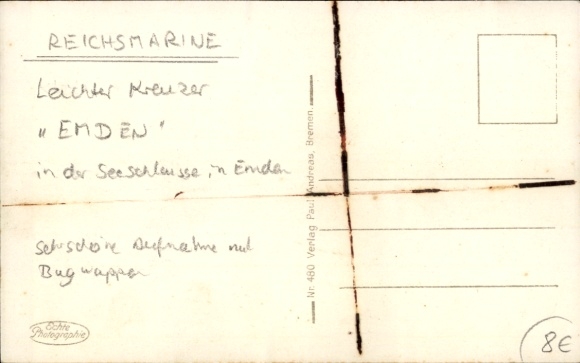 REICHSMARINE
Leichter Kreuzer
"EMDEN"
in der Seeschleusse, in Emden
sehr schöne Aufnahme mit
Bugwappen
Echte
Photographie
Nr. 480 Verlag Paul Andreas, Bremen.
8€